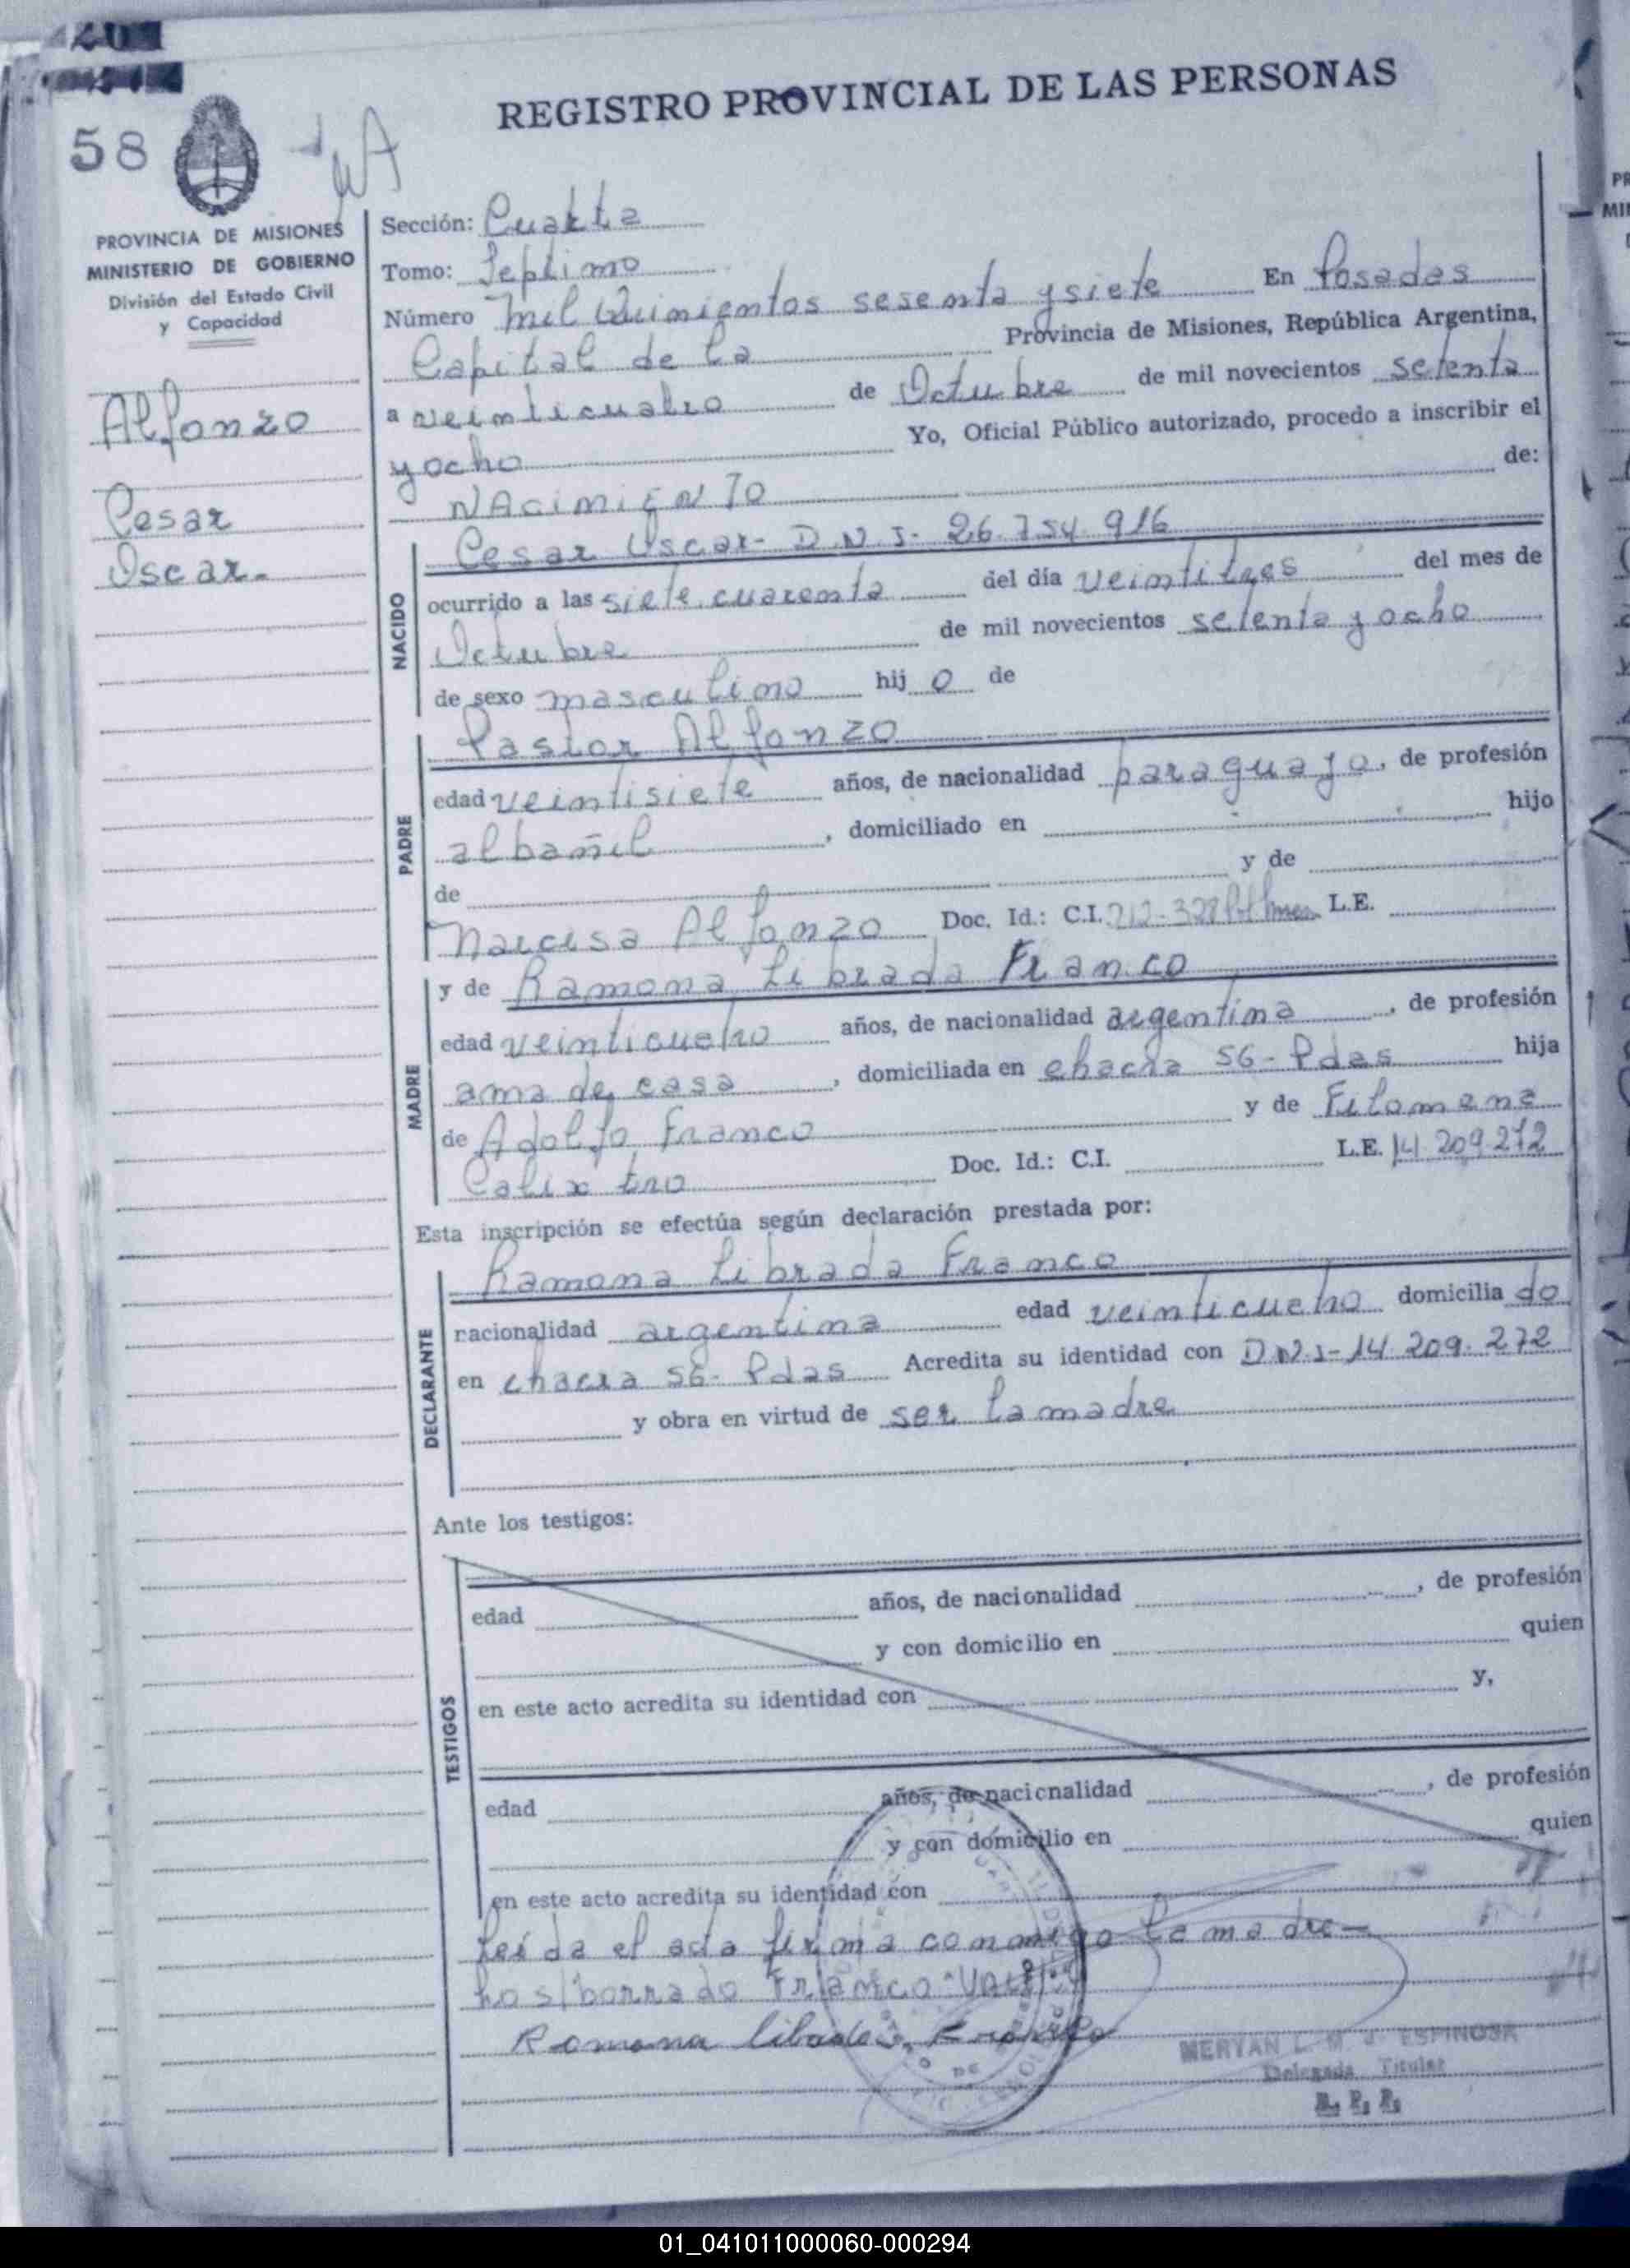 REGISTRO PROVINCIAL DE LAS PERSONAS
58
PROVINCIA DE MISIONES
MINISTERIO DE GOBIERNO
División del Estado Civil
y Capacidad
Alfonzo
Cesar
Oscar.-
Sección: Cuarta
Tomo: Septimo
Número Mil Quinientos sesenta y siete En Posadas
Capital de la Provincia de Misiones, República Argentina,
a veinticuatro de Octubre de mil novecientos setenta
y ocho Yo, Oficial Público autorizado, procedo a inscribir el
NACIMIENTO de:
NACIDO
Cesar Oscar- D.N.I- 26.754.916
ocurrido a las siete cuarenta del día veintitres del mes de
Octubre de mil novecientos setenta y ocho
de sexo masculino hijo de
PADRE
Pastor Alfonzo
edad veintisiete años, de nacionalidad paraguayo, de profesión
albañil, domiciliado en hijo
de y de
Narcisa Alfonzo Doc. Id.: C.I. 212-328 L.E.
MADRE
y de Ramona Librada Franco
edad veinticuatro años, de nacionalidad argentina, de profesión
ama de casa, domiciliada en chacra 56- Pdas hija
de Adolfo Franco y de Filomena
Calixtro Doc. Id.: C.I. L.E. 14.209.272
Esta inscripción se efectúa según declaración prestada por:
DECLARANTE
Ramona Librada Franco
nacionalidad argentina edad veinticuatro domiciliado
en chacra 56- Pdas Acredita su identidad con D.N.I-14.209.272
y obra en virtud de ser la madre
Ante los testigos:
TESTIGOS
edad años, de nacionalidad , de profesión
y con domicilio en quien
en este acto acredita su identidad con y,
edad años, de nacionalidad , de profesión
y con domicilio en quien
en este acto acredita su identidad con
Leida el acta firma conmigo la madre-
hos/borrado Franco- Vale
Romana librada, Franco
MERYAN L. M. J. ESPINOSA
Delegada Titular
R. P. P.
01_041011000060-000294